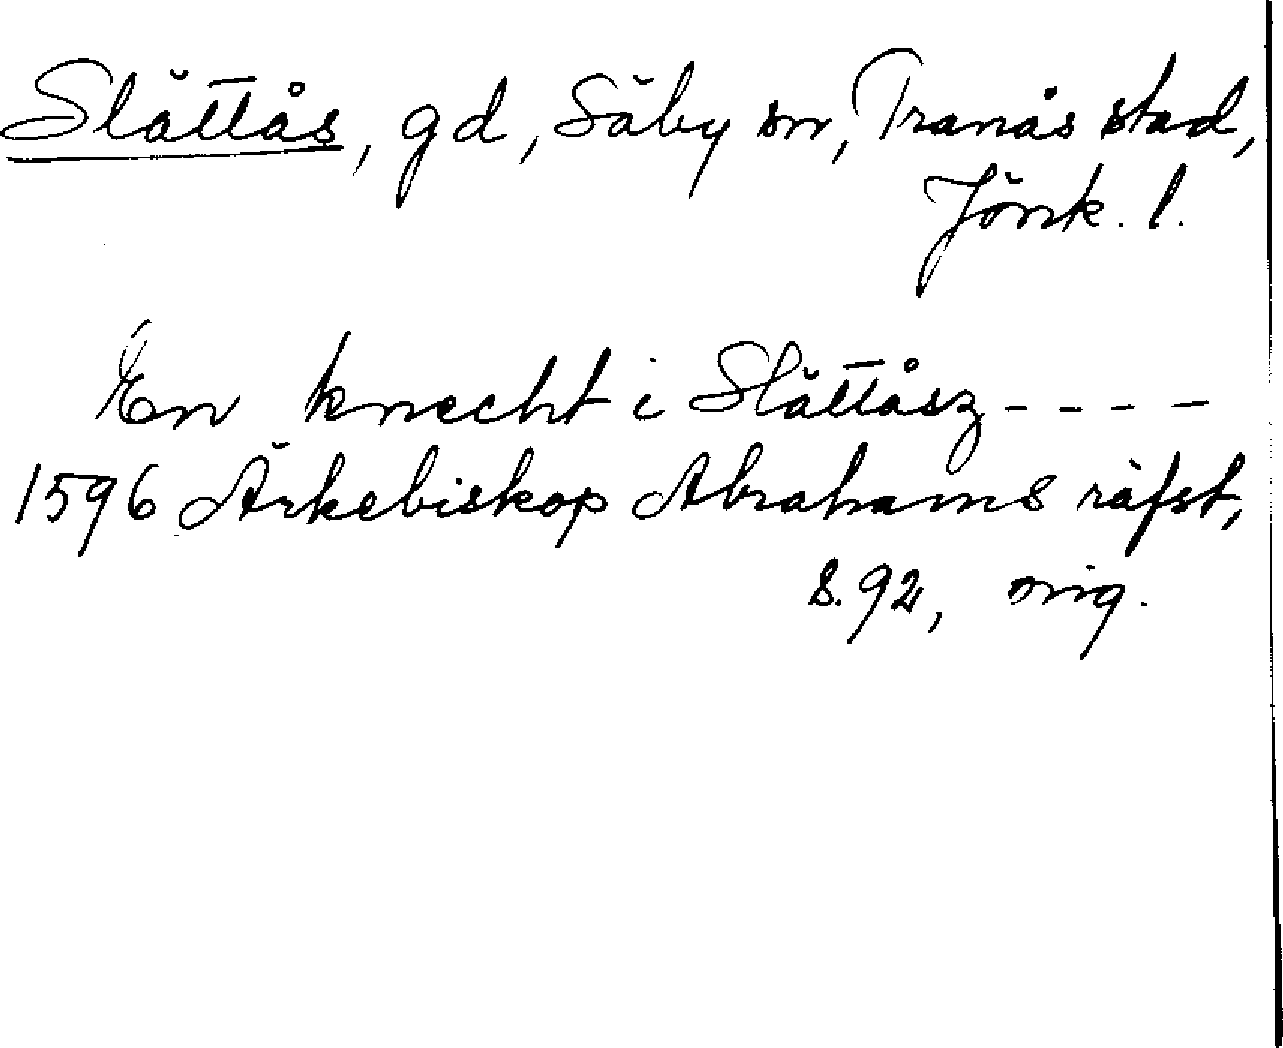 Slättås, gd, Säby sn, Tranås stad,
Jönk. l.
En knecht i Slättåsz - - - -
1596 Ärkebiskop Abrahams räfst,
s. 92, orig.